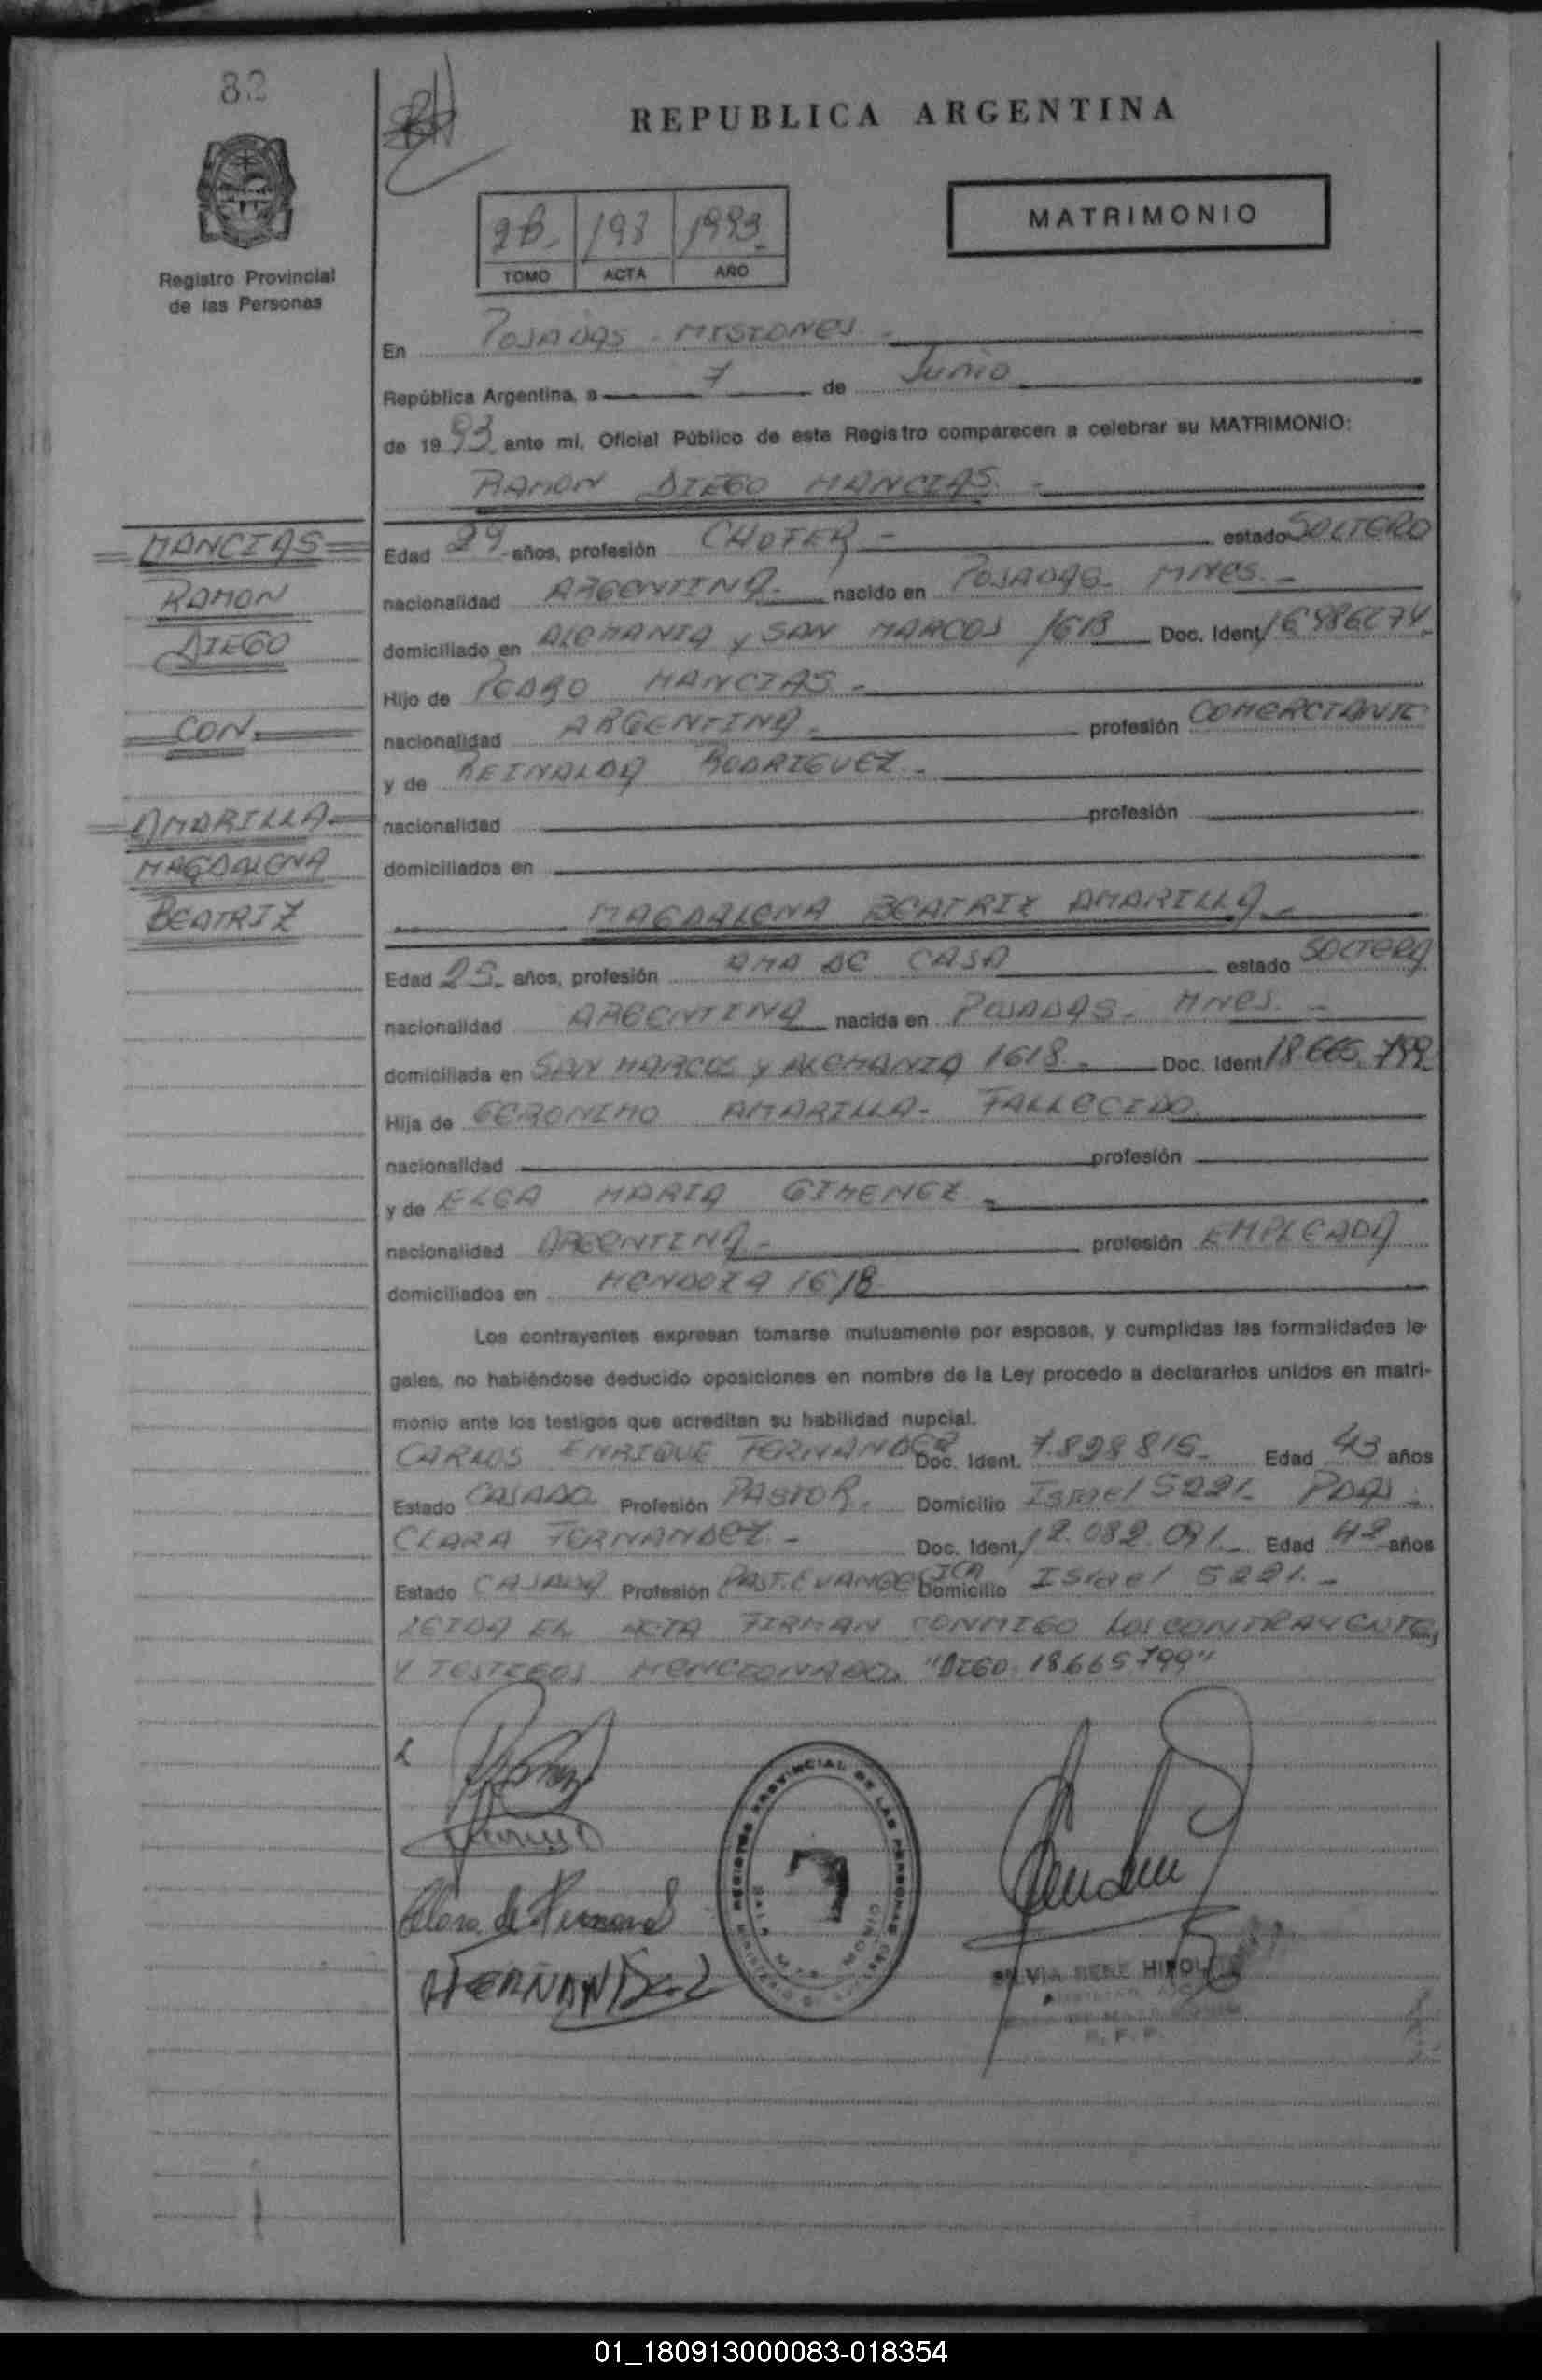 82
REPUBLICA ARGENTINA
MATRIMONIO
2B. 193 1993
TOMO ACTA AÑO
Registro Provincial
de las Personas
En POSADAS - MISIONES -
República Argentina, a 7 de Junio
de 1993. ante mí, Oficial Público de este Registro comparecen a celebrar su MATRIMONIO:
RAMON DIEGO MANCIAS. -
MANCIAS
RAMON
DIEGO
CON
AMARILLA
MAGDALENA
BEATRIZ
Edad 29 años, profesión CHOFER - estado SOLTERO
nacionalidad ARGENTINA. nacido en POSADAS. MNES. -
domiciliado en ALEMANIA y SAN MARCOS 1618 Doc. Ident
Hijo de PEDRO MANCIAS -
nacionalidad ARGENTINA. profesión COMERCIANTE
y de REINALDA RODRIGUEZ -
nacionalidad profesión
domiciliados en
MAGDALENA BEATRIZ AMARILLA -
Edad 25. años, profesión AMA DE CASA estado SOLTERA
nacionalidad ARGENTINA nacida en POSADAS. MNES. -
domiciliada en SAN MARCOS y ALEMANIA 1618. Doc. Ident 18.665.799
Hija de GERONIMO AMARILLA - FALLECIDO.
nacionalidad profesión
y de ELGA MARIA GIMENEZ -
nacionalidad ARGENTINA - profesión EMPLEADA
domiciliados en MENDOZA 1618
Los contrayentes expresan tomarse mutuamente por esposos, y cumplidas las formalidades le-
gales, no habiéndose deducido oposiciones en nombre de la Ley procedo a declararlos unidos en matri-
monio ante los testigos que acreditan su habilidad nupcial.
CARLOS ENRIQUE FERNANDEZ Doc. Ident. 7.828815. Edad 43 años
Estado CASADO Profesión PASTOR. Domicilio Israel 5221. PDAS.
CLARA FERNANDEZ - Doc. Ident. 12.082.091 Edad 42 años
Estado CASADA Profesión PAST. EVANGELICA Domicilio ISrael 5221. -
LEIDA EL ACTA FIRMAN CONMIGO LOS CONTRAYENTES
Y TESTIGOS MENCIONADOS "DIGO: 18.665.799"
Clara de Fernand
FERNANDEZ
REGISTRO PROVINCIAL DE LAS PERSONAS
SILVIA RENE
01_180913000083-018354